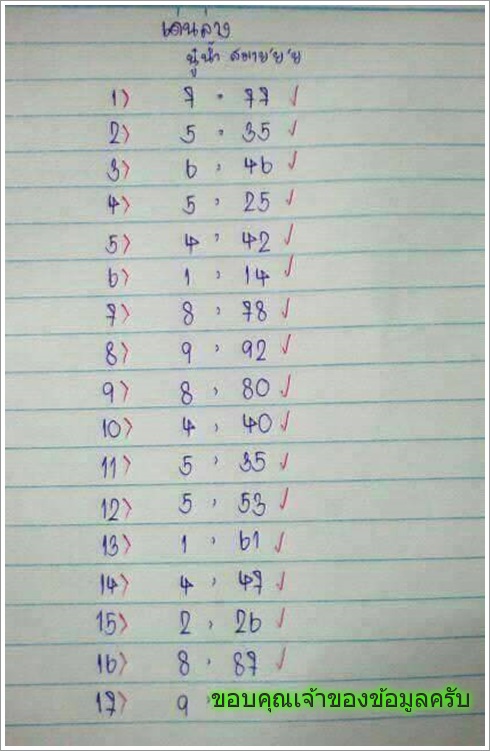 เด่นล่าง
นู๋น้ำ สบายยย
1) 7 , 77 ✓
2) 5 , 35 ✓
3) 6 , 46 ✓
4) 5 , 25 ✓
5) 4 , 42 ✓
6) 1 , 14 ✓
7) 8 , 78 ✓
8) 9 , 92 ✓
9) 8 , 80 ✓
10) 4 , 40 ✓
11) 5 , 35 ✓
12) 5 , 53 ✓
13) 1 , 61 ✓
14) 4 , 47 ✓
15) 2 , 26 ✓
16) 8 , 87 ✓
17) 9 ขอบคุณเจ้าของข้อมูลครับ